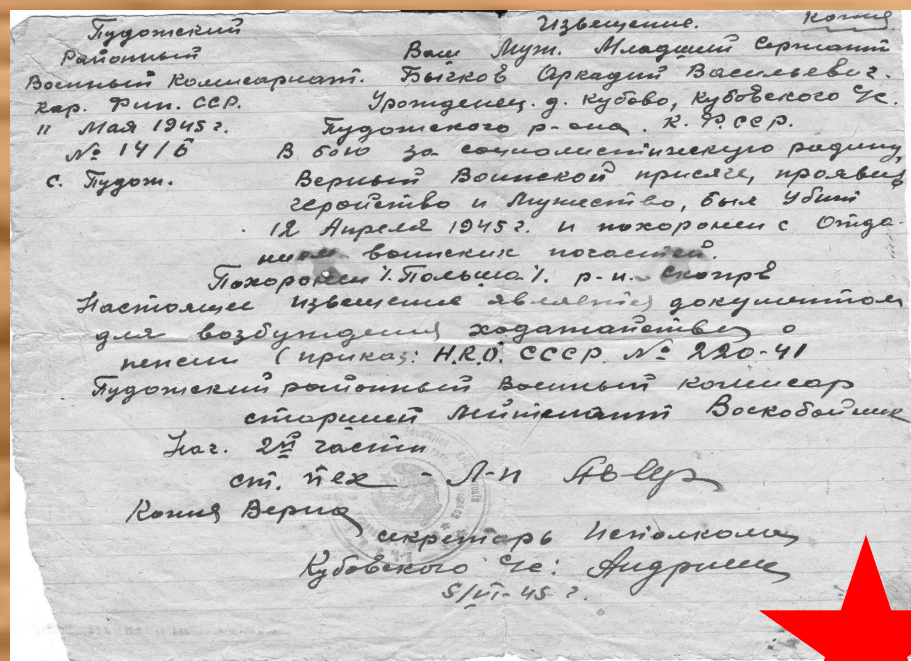 Пудожский
Районный
Военный Комисариат.
кар. Фин. ССР.
11 Мая 1945 г.
№ 14/6
с. Пудож.
Извещение. Копия
Ваш Муж. Младший Сержант
Бычков Аркадий Васильевич.
Урожденец. д. Кубово, Кубовского с/с.
Пудожского р-она. К. Ф.ССР.
В бою за социалистическую родину,
Верный Воинской присяге, проявив
геройство и Мужество, был Убит
12 Апреля 1945 г. и похоронен с Отда-
нием воинских почастей.
Похоронен /. Польша /. р-н.
Настоящее извещение является документом
для возбуждения ходатайства о
пенсии (приказ: Н.К.О. СССР. № 220-41
Пудожский районный Военный комисар
старший Лейтенант Воскобойник
Нач. 2й части
ст. тех - Л-п
Копия Верна
секретарь Исполкома
Кубовского с/с:
5/VI-45 г.